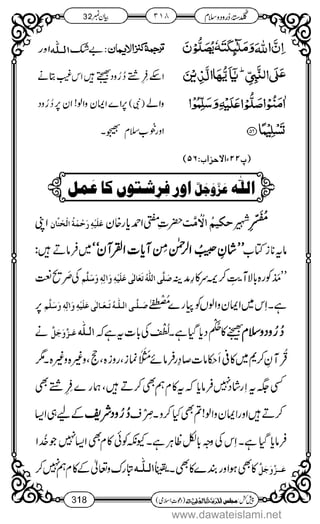 گلدستۂ درود و سلام ۳۱۸ بیان نمبر 32
اِنَّ اللّٰهَ وَ مَلٰٓىٕكَتَهٗ یُصَلُّوْنَ
عَلَى النَّبِیِّؕ-یٰۤاَیُّهَا الَّذِیْنَ
اٰمَنُوْا صَلُّوْا عَلَیْهِ وَ سَلِّمُوْا
تَسْلِیْمًا(۵۶)
(پ۲۲، الاحزاب:۵۶)
ترجمۂ کنزالایمان: بے شک اللہ اور
اسکے فرشتے درود بھیجتے ہیں اس غیب بتانے
والے (نبی) پراے ایمان والو! ان پر درود
اور خوب سلام بھیجو۔
اللہ عَزَّوَجَلَّ اور فرشتوں کا عمل
مُفَسِّرِ شہیر حکیمُ الْاُمَّت حضرتِ مفتی احمد یار خان عَلَیْہِ رَحْمَۃُ الْحَنَّان اپنی
مایہ ناز کتاب ’’شانِ حبیبُ الرَّحْمٰن مِنْ آیاتِ القُرآن‘‘ میں فرماتے ہیں:
’’مذکورہ بالا آیتِ کریمہ سرکارِ مدینہ صَلَّی اللہُ تَعَالٰی عَلَیْہِ وَاٰلِہٖ وَسَلَّم کی صریح نعت
ہے۔ اس میں ایمان والوں کو پیارے مُصْطَفٰے صَلَّی اللہُ تَعَالٰی عَلَیْہِ وَاٰلِہٖ وَسَلَّم پر
دُرُود و سلام بھیجنے کا حکم دیا گیا ہے۔ لُطف کی بات یہ ہے کہ اللہ عَزَّوَجَلَّ نے
قرآنِ کریم میں کافی اَحکامات صادِر فرمائے مَثَلاً نماز، روزہ، حج، وغیرہ وغیرہ۔ مگر
کسی جگہ یہ ارشاد نہیں فرمایا کہ یہ کام ہم بھی کرتے ہیں، ہمارے فرشتے بھی
کرتے ہیں اور ایمان والو! تم بھی کیا کرو۔ صرف دُرُود شریف کے لیے ہی ایسا
فرمایا گیا ہے۔ اس کی وجہ بالکل ظاہر ہے۔ کیونکہ کوئی کام بھی ایسا نہیں جو خُدا
عَزَّوَجَلَّ کا بھی ہو اور بندے کا بھی۔ یقیناً اللہ تبارک وَتعالٰی کے کام ہم نہیں کر
318
www.dawateislami.net